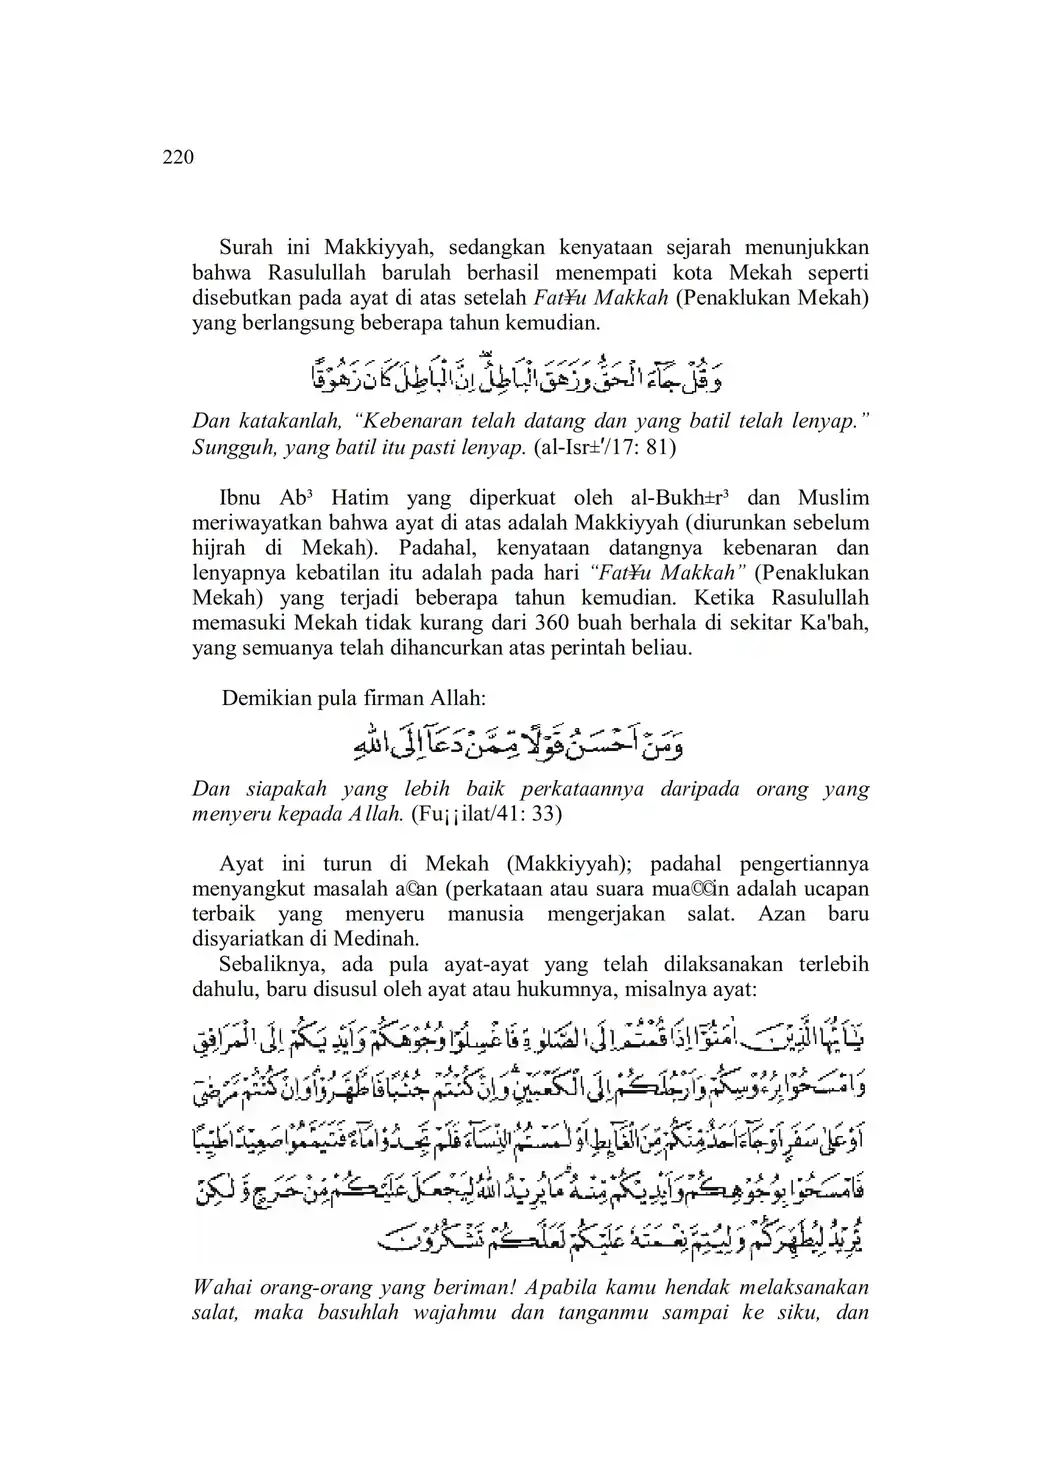 220
Surah ini Makkiyyah, sedangkan kenyataan sejarah menunjukkan
bahwa Rasulullah barulah berhasil menempati kota Mekah seperti
disebutkan pada ayat di atas setelah Fat¥u Makkah (Penaklukan Mekah)
yang berlangsung beberapa tahun kemudian.
وَقُلْ جَاۤءَ الْحَقُّ وَزَهَقَ الْبَاطِلُ ۖاِنَّ الْبَاطِلَ كَانَ زَهُوْقًا
Dan katakanlah, “Kebenaran telah datang dan yang batil telah lenyap.”
Sungguh, yang batil itu pasti lenyap. (al-Isr±′/17: 81)
Ibnu Ab³ Hatim yang diperkuat oleh al-Bukh±r³ dan Muslim
meriwayatkan bahwa ayat di atas adalah Makkiyyah (diurunkan sebelum
hijrah di Mekah). Padahal, kenyataan datangnya kebenaran dan
lenyapnya kebatilan itu adalah pada hari “Fat¥u Makkah” (Penaklukan
Mekah) yang terjadi beberapa tahun kemudian. Ketika Rasulullah
memasuki Mekah tidak kurang dari 360 buah berhala di sekitar Ka'bah,
yang semuanya telah dihancurkan atas perintah beliau.
Demikian pula firman Allah:
وَمَنْ اَحْسَنُ قَوْلًا مِّمَّنْ دَعَآ اِلَى اللّٰهِ
Dan siapakah yang lebih baik perkataannya daripada orang yang
menyeru kepada Allah. (Fu¡¡ilat/41: 33)
Ayat ini turun di Mekah (Makkiyyah); padahal pengertiannya
menyangkut masalah a©an (perkataan atau suara mua©©in adalah ucapan
terbaik yang menyeru manusia mengerjakan salat. Azan baru
disyariatkan di Medinah.
Sebaliknya, ada pula ayat-ayat yang telah dilaksanakan terlebih
dahulu, baru disusul oleh ayat atau hukumnya, misalnya ayat:
يٰٓاَيُّهَا الَّذِيْنَ اٰمَنُوْٓا اِذَا قُمْتُمْ اِلَى الصَّلٰوةِ فَاغْسِلُوْا وُجُوْهَكُمْ وَاَيْدِيَكُمْ اِلَى الْمَرَافِقِ
وَامْسَحُوْا بِرُءُوْسِكُمْ وَاَرْجُلَكُمْ اِلَى الْكَعْبَيْنِۗ وَاِنْ كُنْتُمْ جُنُبًا فَاطَّهَّرُوْاۗ وَاِنْ كُنْتُمْ مَّرْضٰٓى
اَوْ عَلٰى سَفَرٍ اَوْ جَاۤءَ اَحَدٌ مِّنْكُمْ مِّنَ الْغَاۤىِٕطِ اَوْ لٰمَسْتُمُ النِّسَاۤءَ فَلَمْ تَجِدُوْا مَاۤءً فَتَيَمَّمُوْا صَعِيْدًا طَيِّبًا
فَامْسَحُوْا بِوُجُوْهِكُمْ وَاَيْدِيْكُمْ مِّنْهُ ۗمَا يُرِيْدُ اللّٰهُ لِيَجْعَلَ عَلَيْكُمْ مِّنْ حَرَجٍ وَّلٰكِنْ
يُّرِيْدُ لِيُطَهِّرَكُمْ وَلِيُتِمَّ نِعْمَتَهٗ عَلَيْكُمْ لَعَلَّكُمْ تَشْكُرُوْنَ
Wahai orang-orang yang beriman! Apabila kamu hendak melaksanakan
salat, maka basuhlah wajahmu dan tanganmu sampai ke siku, dan